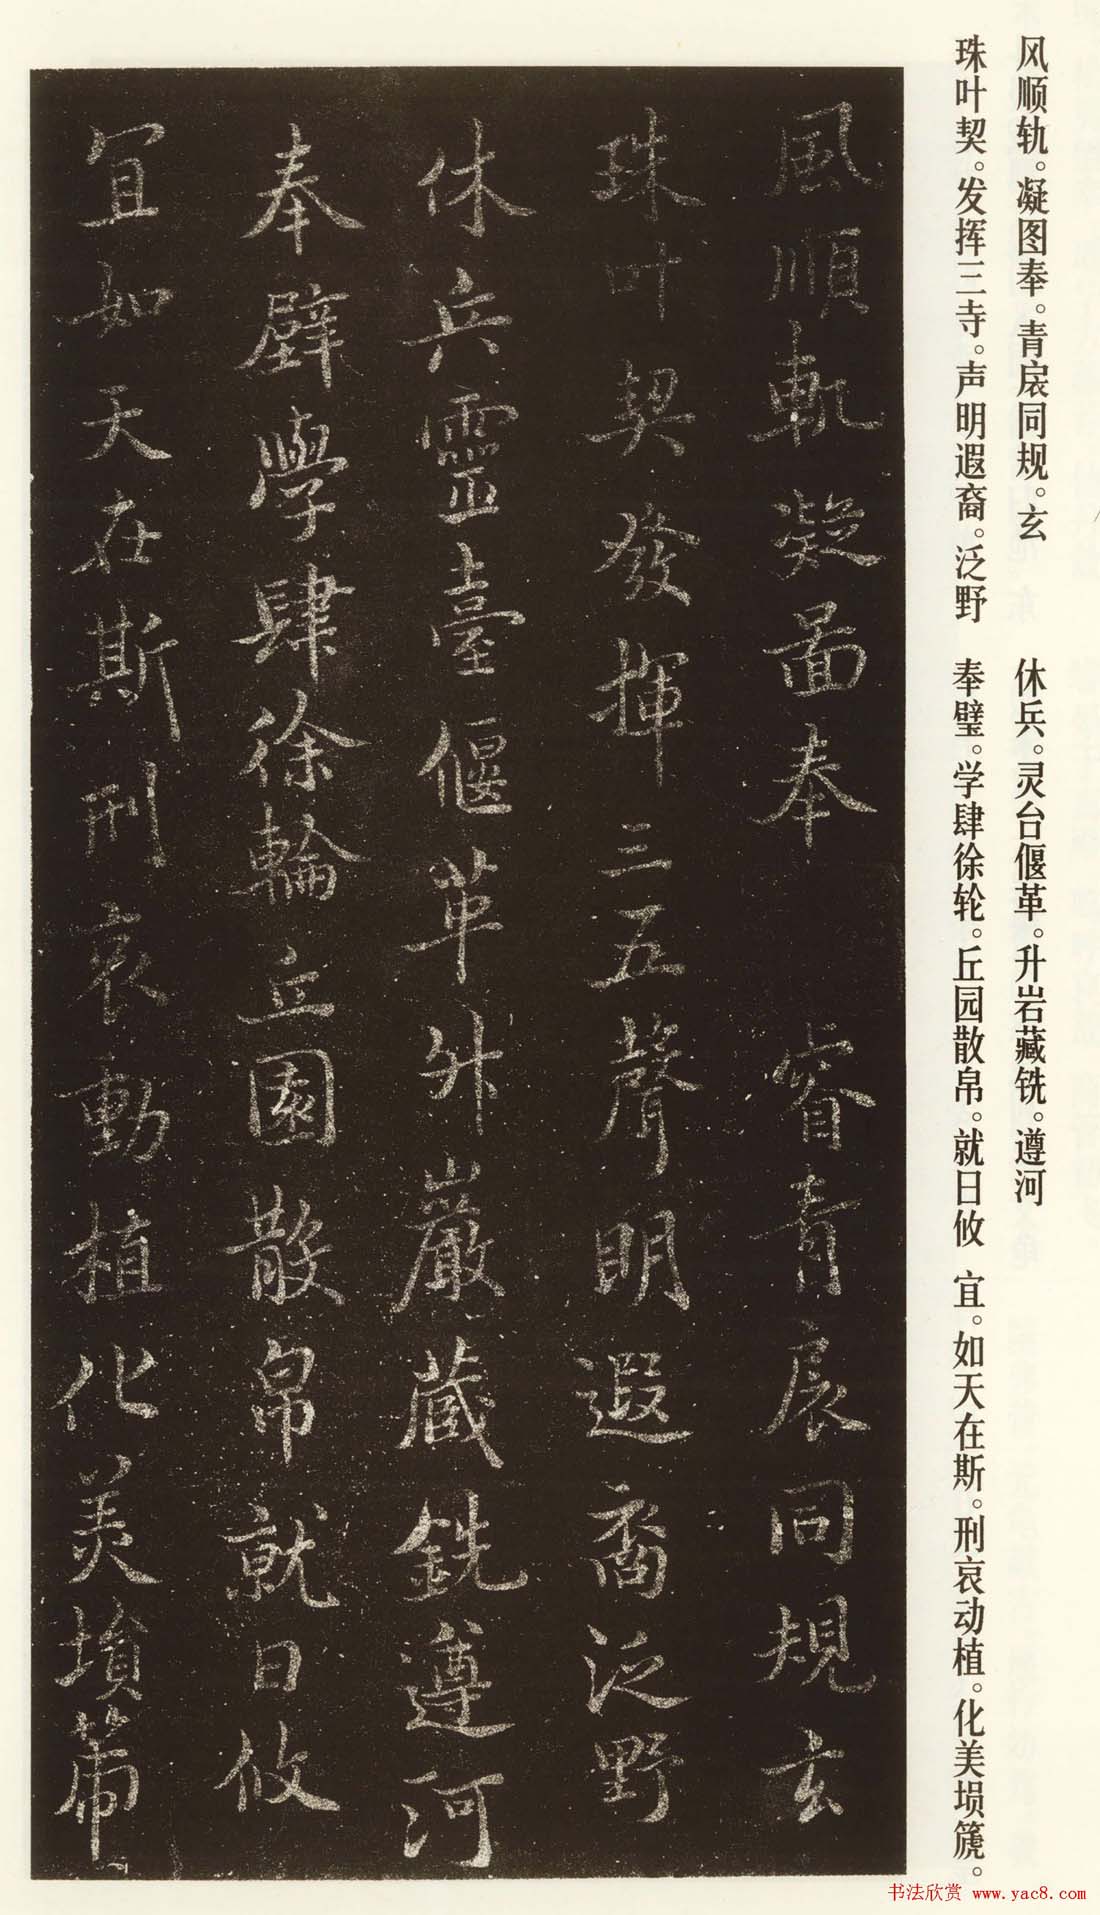 风顺轨。凝图奉。青扆同规。玄
珠叶契。发挥三寺。声明遐裔。泛野
休兵。灵台偃革。升岩藏铣。遵河
奉璧。学肆徐轮。丘园散帛。就日攸
宜。如天在斯。刑哀动植。化美埙篪。
風順軌凝啚奉睿青扆同規玄
珠叶契發揮三五聲明遐裔泛野
休兵靈臺偃革升巖藏銑遵河
奉璧學肆徐輪丘園散帛就日攸
宜如天在斯刑哀動植化美塤篪
书法欣赏 www.yac8.com